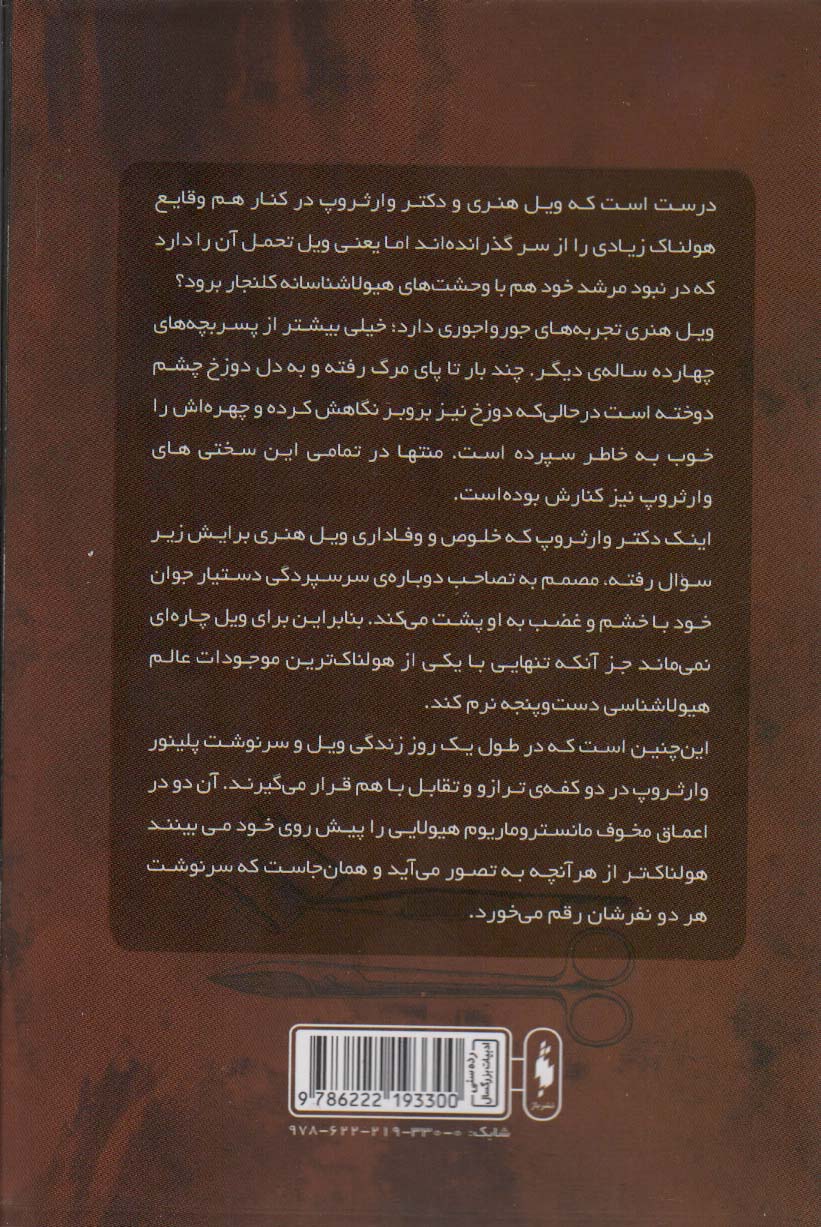 درست است که ویل هنری و دکتر وارثروپ در کنار هم وقایع
هولناک زیادی را از سر گذرانده‌اند اما یعنی ویل تحمل آن را دارد
که در نبود مرشد خود هم با وحشت‌های هیولاشناسانه کلنجار برود؟
ویل هنری تجربه‌های جورواجوری دارد؛ خیلی بیشتر از پسربچه‌های
چهارده ساله‌ی دیگر. چند بار تا پای مرگ رفته و به دل دوزخ چشم
دوخته است در حالی‌که دوزخ نیز بِروبِر نگاهش کرده و چهره‌اش را
خوب به خاطر سپرده است. منتها در تمامی این سختی های
وارثروپ نیز کنارش بوده‌است.
اینک دکتر وارثروپ که خلوص و وفاداری ویل هنری برایش زیر
سؤال رفته، مصمم به تصاحب دوباره‌ی سرسپردگی دستیار جوان
خود با خشم و غضب به او پشت می‌کند. بنابراین برای ویل چاره‌ای
نمی‌ماند جز آنکه تنهایی با یکی از هولناک‌ترین موجودات عالم
هیولاشناسی دست‌وپنجه نرم کند.
این‌چنین است که در طول یک روز زندگی ویل و سرنوشت پلینور
وارثروپ در دو کفه‌ی ترازو و تقابل با هم قرار می‌گیرند. آن دو در
اعماق مخوف مانستروماریوم هیولایی را پیش روی خود می بینند
هولناک‌تر از هرآنچه به تصور می‌آید و همان‌جاست که سرنوشت
هر دو نفرشان رقم می‌خورد.
رده سنی
ادبیات بزرگسال
نشر باژ
9 786222 193300
شابک: ۹۷۸-۶۲۲-۲۱۹-۳۳۰-۰